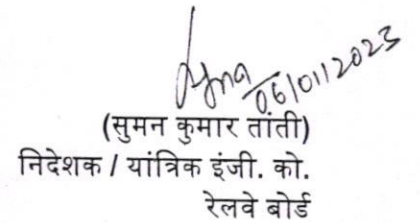 06/01/2023
(सुमन कुमार तांती)
निदेशक / यांत्रिक इंजी. को.
रेलवे बोर्ड